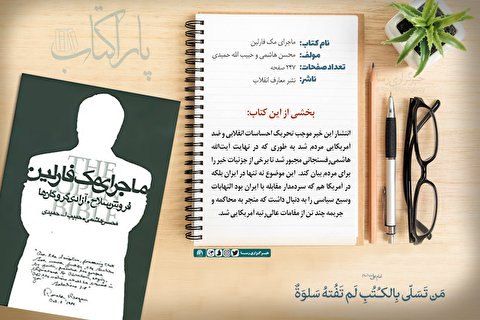 پاراکتاب
نام کتاب: ماجرای مک فارلین
مولف: محسن هاشمی و حبیب الله حمیدی
تعداد صفحات: ۲۴۷ صفحه
ناشر: نشر معارف انقلاب
بخشی از این کتاب:
انتشار این خبر موجب تحریک احساسات انقلابی و ضد
آمریکایی مردم شد به طوری که در نهایت آیت‌الله
هاشمی‌رفسنجانی مجبور شد تا برخی از جزئیات خبر را
برای مردم بیان کند. این موضوع نه تنها در ایران بلکه
در آمریکا هم که سردمدار مقابله با ایران بود التهابات
وسیع سیاسی را به دنبال داشت که منتج به محاکمه و
جریمه چند تن از مقامات عالی‌رتبه آمریکایی شد.
خبرگزاری رسا
THE
BIBLE
ماجرای مک فارلین
فروش سلاح، آزادی گروگان‌ها
مَن تَسَلّی بِالکُتُبِ لَم تَفُتهُ سَلوَةٌ